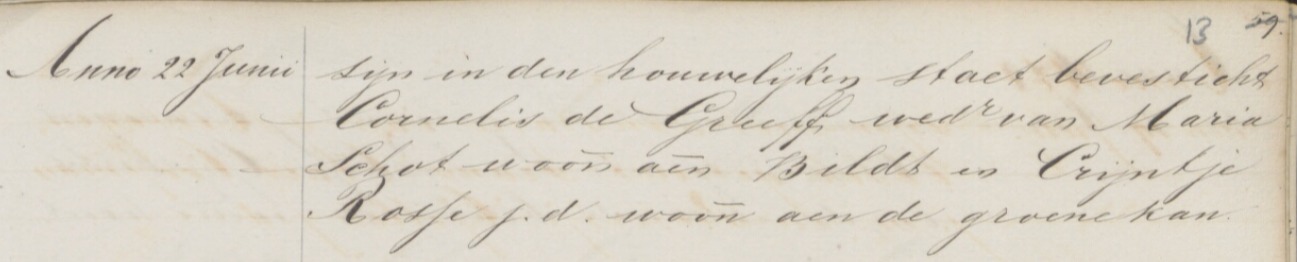 13 59.
Anno 22 Junii sijn in den houwelijken staet bevesticht
Cornelis de Greeff wedr van Maria
Schot woon̄ aen̄ Bildt en Crijntje
Rosse j.d. woon̄ aen de groene kan.